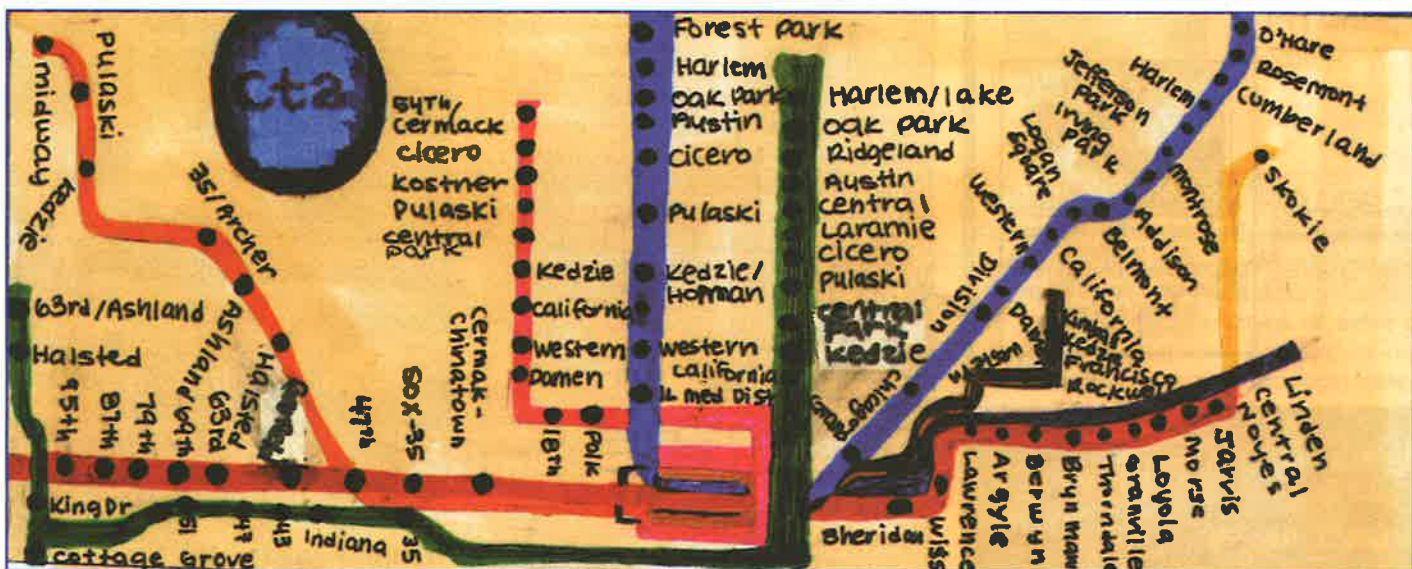 cta
Pulaski
midway
Kedzie
35/Archer
Ashland
Halsted
63rd/Ashland
Halsted
95th
87th
79th
69th
63rd
47th
SOX-35
cermak-
chinatown
King Dr
Cottage Grove
51
47
43
Indiana
35
54th/
cermack
cicero
Kostner
Pulaski
central
park
Kedzie
california
western
Damen
18th
Polk
Forest park
Harlem
oak park
Austin
cicero
pulaski
Kedzie/
Homan
western
california
IL med Dist
Harlem/lake
oak park
Ridgeland
Austin
central
Laramie
cicero
pulaski
central
park
kedzie
O'Hare
Rosemont
Cumberland
Harlem
Jefferson
park
Irving
park
Montrose
Addison
Belmont
Logan
square
California
western
Division
Damen
chicago
Grand
Kedzie
Francisco
Rockwell
skokie
Linden
central
Noyes
Jarvis
Morse
Loyola
Granville
Thorndale
Bryn mawr
Berwyn
Argyle
Lawrence
Sheridan